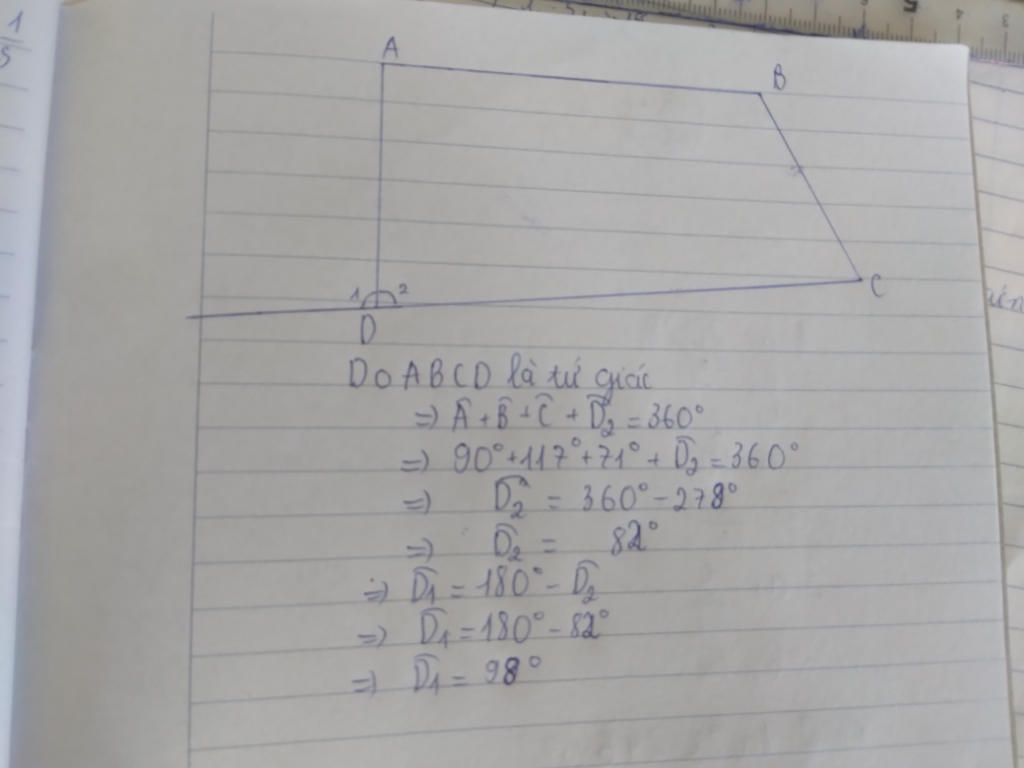 1
5
5 4 3
A
B
1 2
C
D
Do ABCD là tứ giác
=) Â + B̂ + Ĉ + D̂₂ = 360°
=) 90° + 117° + 71° + D̂₂ = 360°
=) D̂₂ = 360° - 278°
=) D̂₂ = 82°
=) D̂₁ = 180° - D̂₂
=) D̂₁ = 180° - 82°
=) D̂₁ = 98°